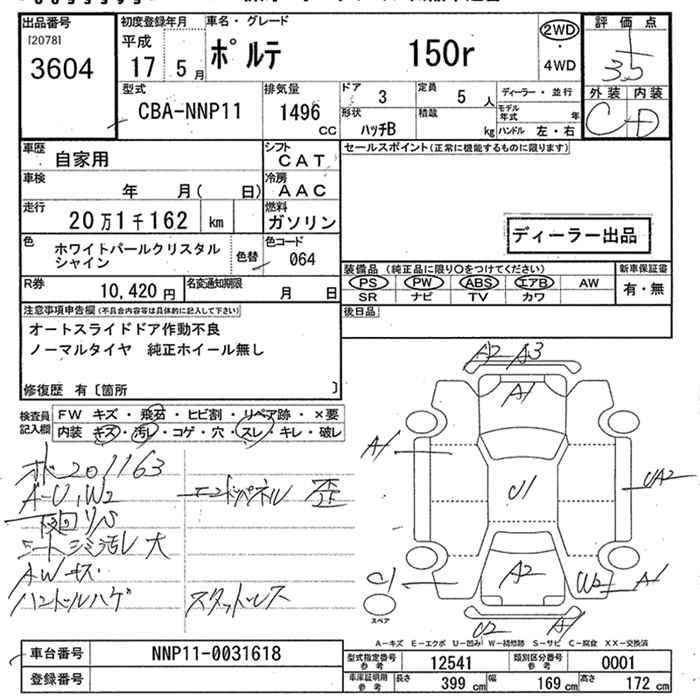 出品番号
[2078]
3604
初度登録年月
平成
17 5月
車名・グレード
ポルテ 150r
2WD
・
4WD
評価点
3.5
外装 内装
C D
型式
CBA-NNP11
排気量
1496 cc
ドア 3
定員 5 人
形状 ハッチB
積載 kg
ディーラー・並行
モデル年式 年
ハンドル 左・右
車歴 自家用
シフト CAT
車検 年 月( 日)
冷房 AAC
走行 20万1千162 km
燃料 ガソリン
色 ホワイトパールクリスタル
シャイン
色替
色コード 064
R券 10,420円
名変通知期限 月 日
セールスポイント(正常に機能するものに限ります)
ディーラー出品
装備品(純正品に限り○をつけてください)
新車保証書
PS PW ABS エアB AW
有・無
SR ナビ TV カワ
後日品
注意事項申告欄(不具合内容等は具体的に記入して下さい)
オートスライドドア作動不良
ノーマルタイヤ 純正ホイール無し
修復歴 有〔箇所 〕
検査員記入欄
FW キズ・飛石・ヒビ割・リペア跡・×要
内装 キズ・汚レ・コゲ・穴・スレ・キレ・破レ
201163
A-U,W2
エンドパネル 歪
シートシミ汚レ大
AWキズ
ハンドルハゲ
スタッドレス
A2 A3
A1
A1
U1
UA2
A2
W2 A1
U2 A1
スペア
A-キズ E-エクボ U-凹み W-補修跡 S-サビ C-腐食 XX-交換済
車台番号 NNP11-0031618
登録番号
型式指定番号参考 12541
類別区分番号参考 0001
車庫証明用参考
長さ 399 cm
幅 169 cm
高さ 172 cm